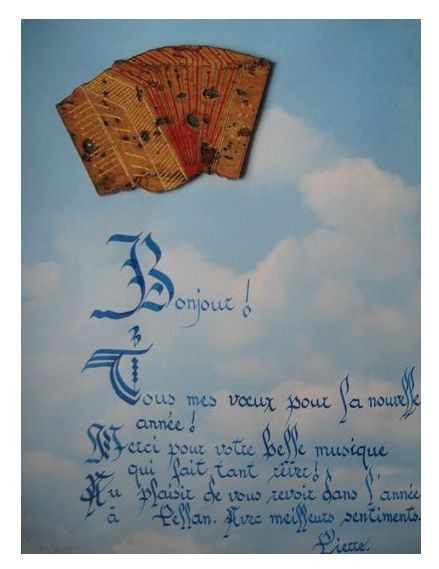 Bonjour !
Tous mes vœux pour la nouvelle
année !
Merci pour votre belle musique
qui fait tant rêver !
Au plaisir de vous revoir dans l'année
à Pellan. Avec meilleurs sentiments.
Pierre.